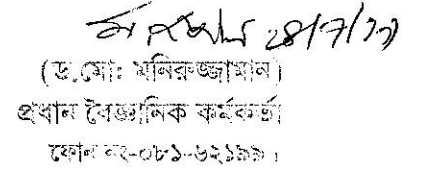 ২৪/৭/১১
(ড.মো: মনিরুজ্জামান)
প্রধান বৈজ্ঞানিক কর্মকর্তা
ফোন নং-০৮১-৬২১৯৯।